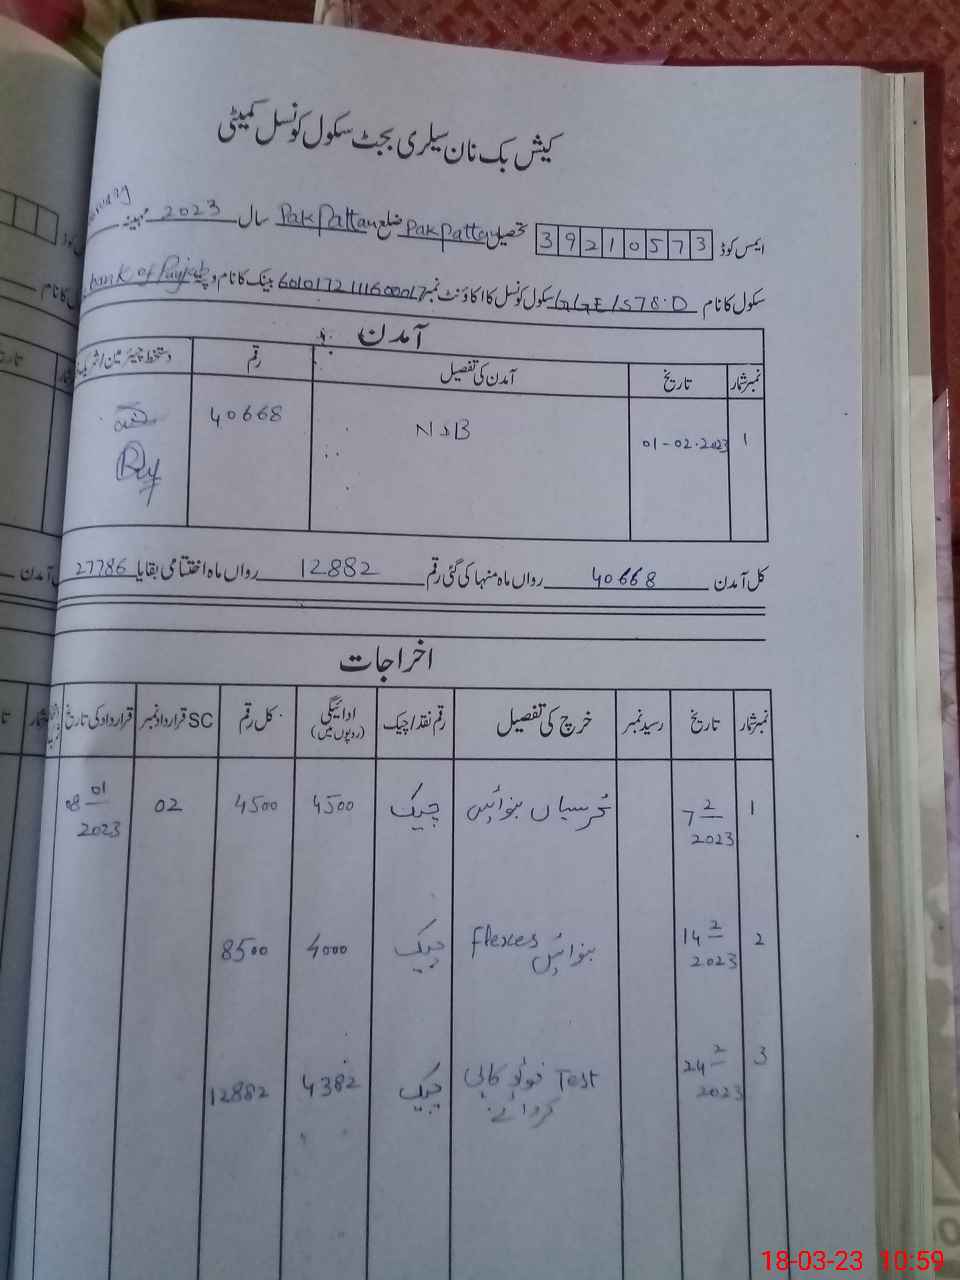 کیش بک نان سیلری بجٹ سکول کونسل کمیٹی
ایمس کوڈ 39210573 تحصیل PakPattan ضلع PakPattan سال 2023 مہینہ
سکول کا نام GGE/S78.D سکول کونسل کا اکاؤنٹ نمبر بینک کا نام و پتہ bank of Punjab
آمدن
نمبر شمار تاریخ آمدن کی تفصیل رقم
1 01-02-2023 NSB 40668
کل آمدن 40668 رواں ماہ منہا کی گئی رقم 12882 رواں ماہ اختتامی بقایا 27786
اخراجات
نمبر شمار تاریخ رسید نمبر خرچ کی تفصیل رقم نقد/چیک ادائیگی (روپوں میں) کل رقم SC قرارداد نمبر قرارداد کی تاریخ
1 7 2 2023 کرسیاں بنوائیں چیک 4500 4500 02 08 01 2023
2 14 2 2023 Flexes بنوائیں چیک 4000 8500
3 24 2 2023 Test فوٹو کاپی چیک 4382 12882
کروائے
18-03-23 10:59